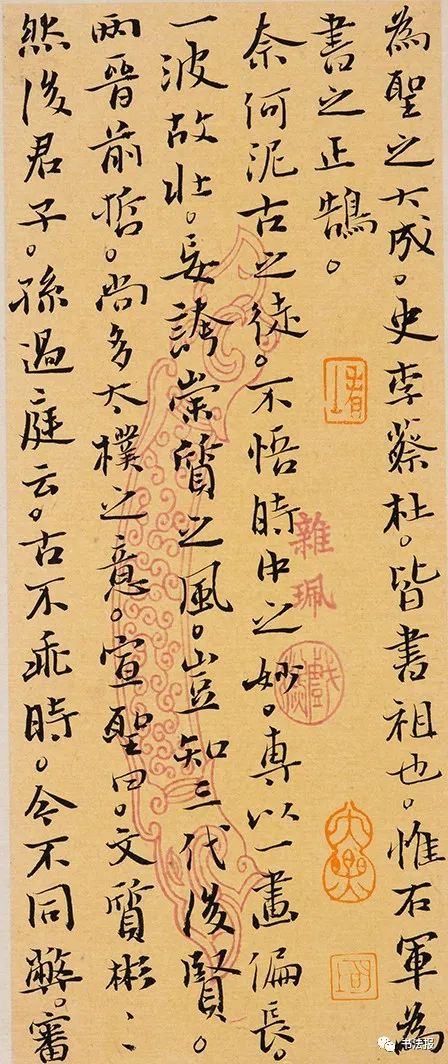 為聖之大成。史李蔡杜。皆書祖也。惟右軍為
書之正鵠。
奈何泥古之徒。不悟時中之妙。專以一畫偏長。
一波故壯。妄誇崇質之風。豈知三代後賢。
兩晉前哲。尚多太樸之意。宣聖曰。文質彬〻
然後君子。孫過〻庭云。古不乖時。今不同弊。審
雜珮
书法报